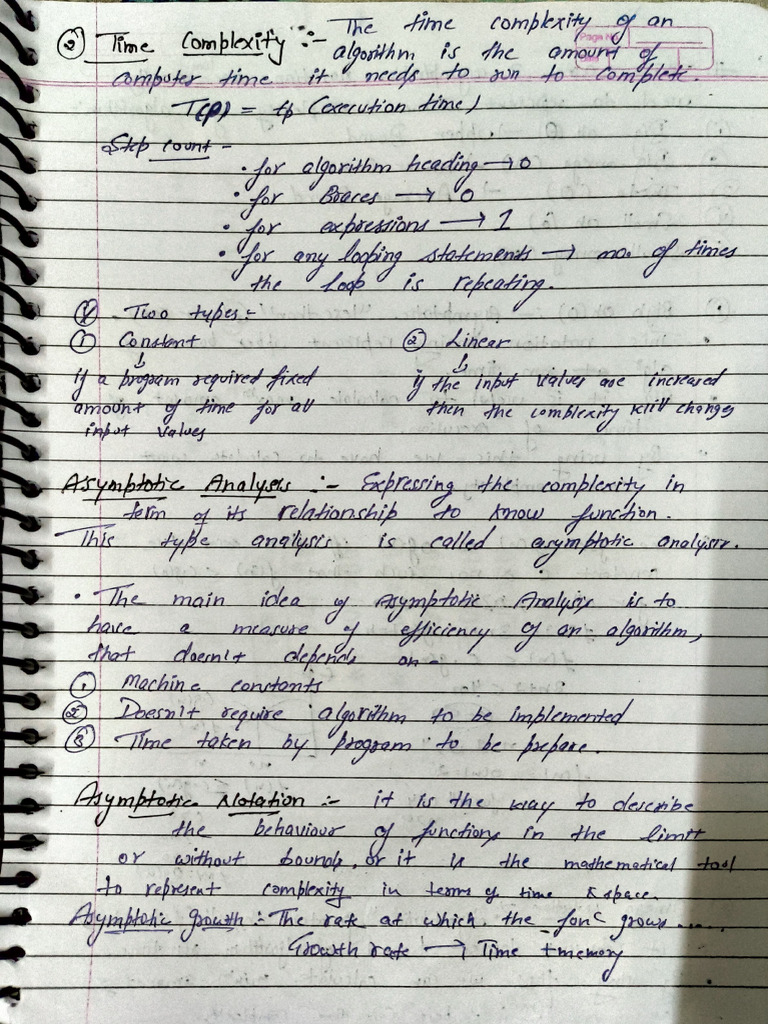 ② Time Complexity :- The time complexity of an
algorithm is the amount of
computer time it needs to run to complete.
T(P) = tp (execution time)
Step count -
• for algorithm heading → 0
• for Braces → 0
• for expressions → 1
• for any looping statements → no. of times
the loop is repeating.
Two types:-
① Constant ② Linear
↓ ↓
if a program required fixed if the input values are increased
amount of time for all then the complexity will changes
input values
Asymptotic Analysis :- Expressing the complexity in
term of its relationship to know function.
This type analysis is called asymptotic analysis.
• The main idea of Asymptotic Analysis is to
have a measure of efficiency of an algorithm,
that doesn't depends on -
① Machine constants
② Doesn't require algorithm to be implemented
③ Time taken by program to be prepare.
Asymptotic Notation :- it is the way to describe
the behaviour of functions in the limit
or without bounds, or it is the mathematical tool
to represent complexity in terms of time & space.
Asymptotic growth :- The rate at which the func grows .....
Growth rate → Time + memory